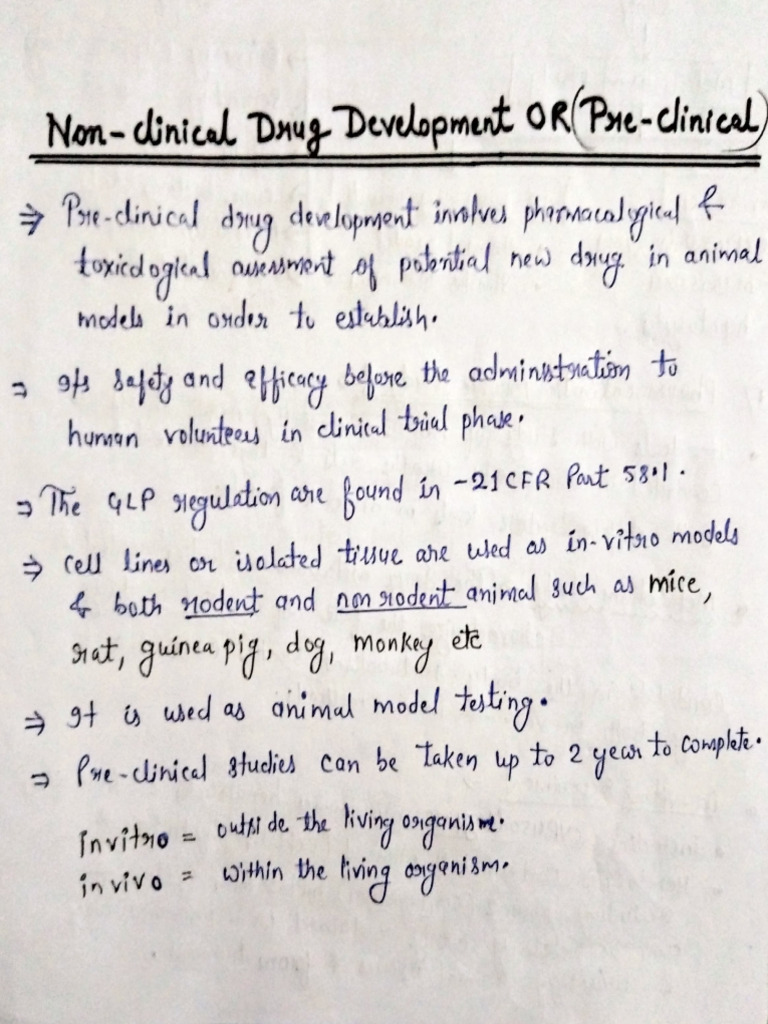 Non-clinical Drug Development OR (Pre-clinical)
⇒ Pre-clinical drug development involves pharmacolgical &
toxicological assessment of potential new drug in animal
models in order to establish.
⇒ It's safety and efficacy before the administration to
human volunteers in clinical trial phase.
⇒ The GLP regulation are found in -21 CFR Part 58.1.
⇒ cell lines or isolated tissue are used as in-vitro models
& both rodent and non rodent animal such as mice,
rat, guinea pig, dog, monkey etc
⇒ It is used as animal model testing.
⇒ Pre-clinical studies can be taken up to 2 year to complete.
invitro = outside the living organism.
in vivo = within the living organism.